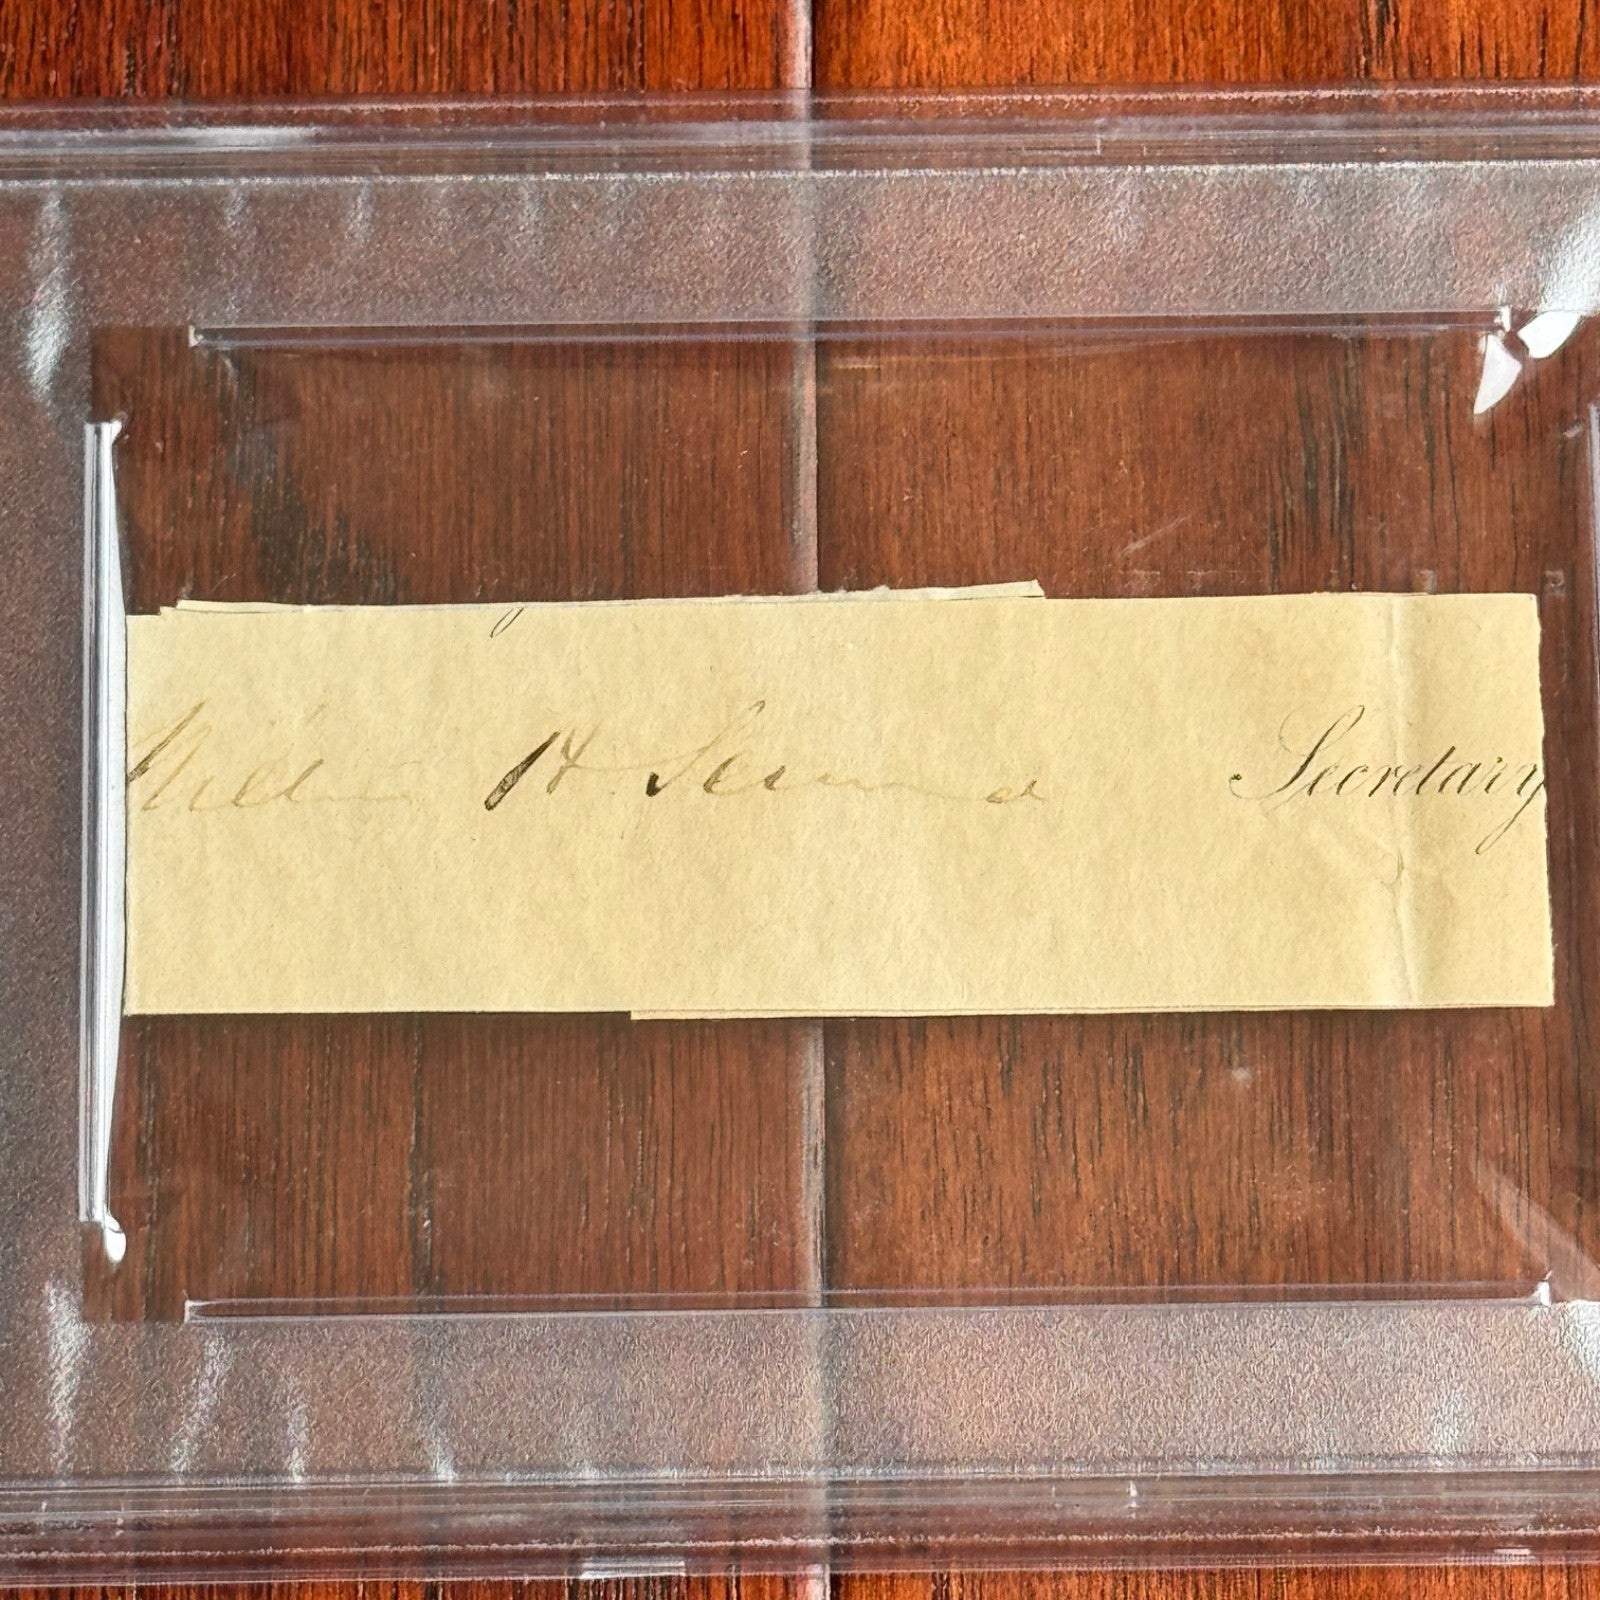 William H Seward Secretary